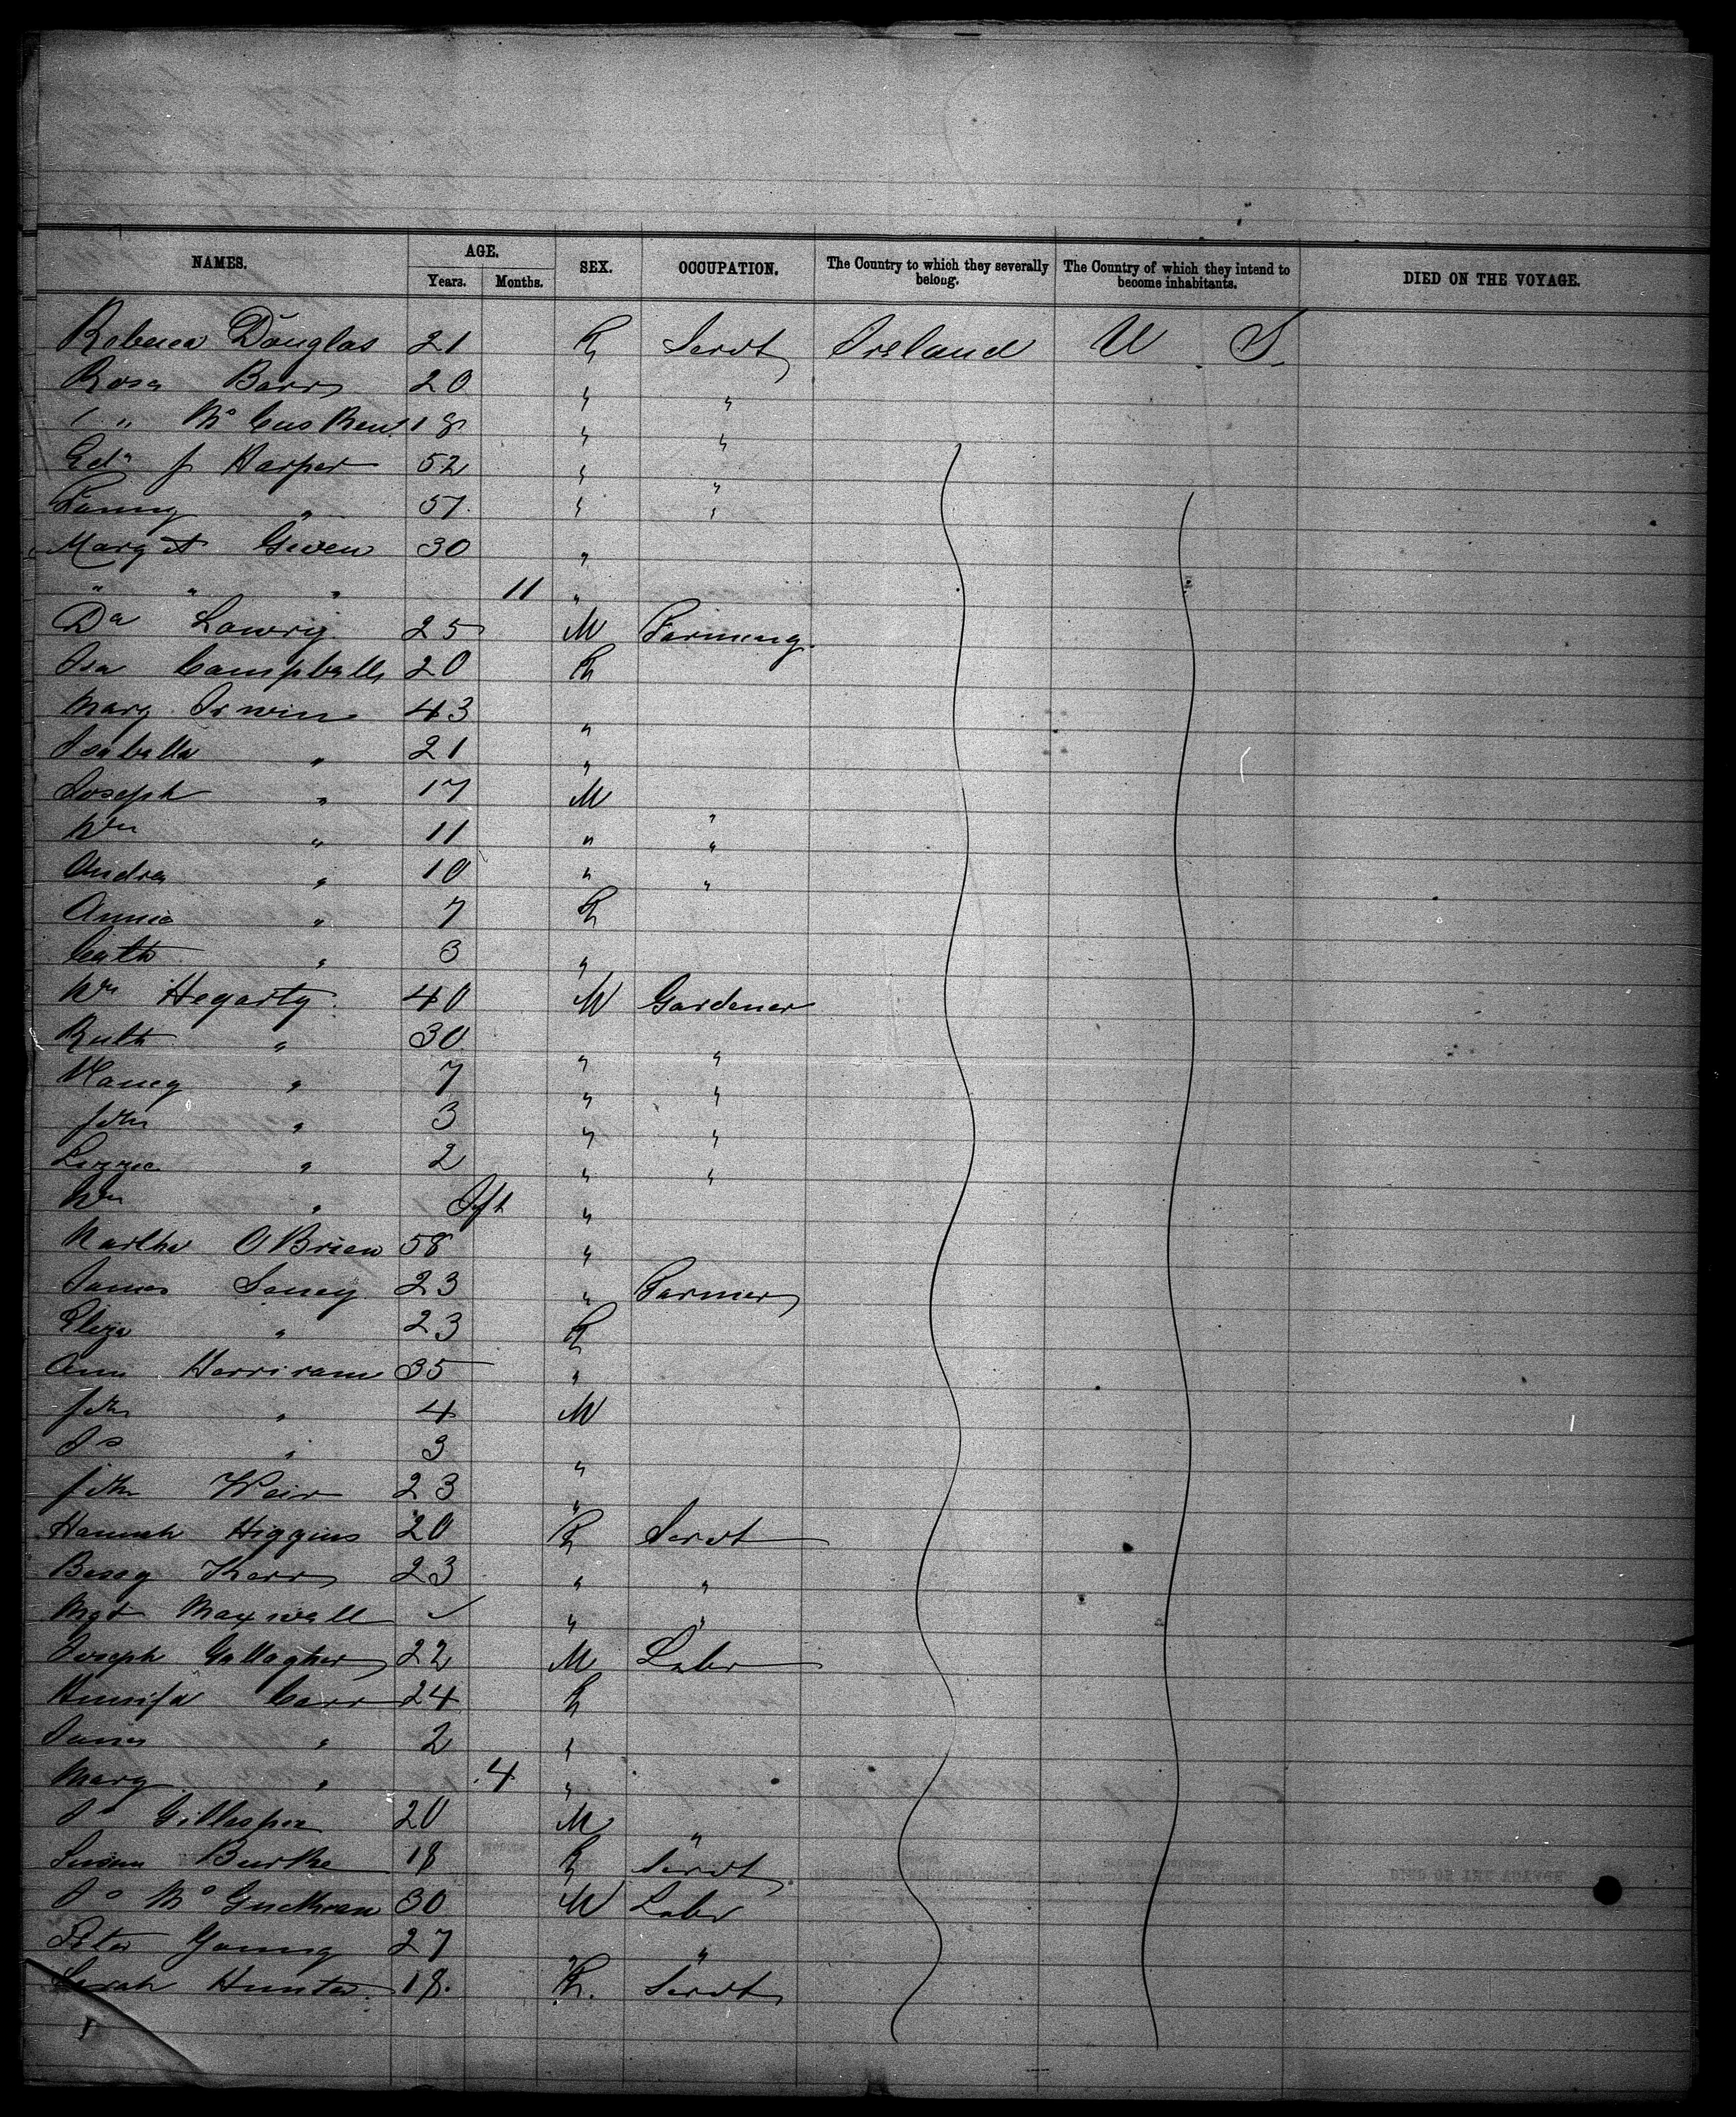 NAMES. AGE. SEX. OCCUPATION. The Country to which they severally belong. The Country of which they intend to become inhabitants. DIED ON THE VOYAGE.
Years. Months.
Rebecca Douglas 21 F Servt Ireland U S
Rosa Barr 20 " "
" Mc Cusken 18 " "
Edn J Harper 52 " "
Fanny " 57 " "
Margt Given 30 "
" " " 11 "
Da Lowry 25 M Farming
Isa Campbell 20 F
Marg Irwin 43 "
Isabella " 21 "
Joseph " 17 M "
Wm " 11 " "
Andrew " 10 " "
Annie " 7 F
Cath " 3 "
Wm Hegarty 40 M Gardener
Ruth " 30 " "
Nancy " 7 " "
John " 3 " "
Lizzie " 2 " "
Wm " Inft "
Martha O Brien 58 "
James 23 " Farmer
Eliza " 23 F
Ann 35 "
John " 4 M
Js " 3 "
John Weir 23 "
Hannah Higgins 20 F Servt
Bessy Kerr 23 " "
Mgt Maxwell ✓ " "
Joseph Gallagher 22 M Labr
Carr 24 F
" 2 "
Marg " 4 "
Jo Gillespie 20 M "
Susan Burke 18 F Servt
Jo Mc Guckean 30 M Labr
Peter Young 27 " "
Sarah Hunter 18 F Servt